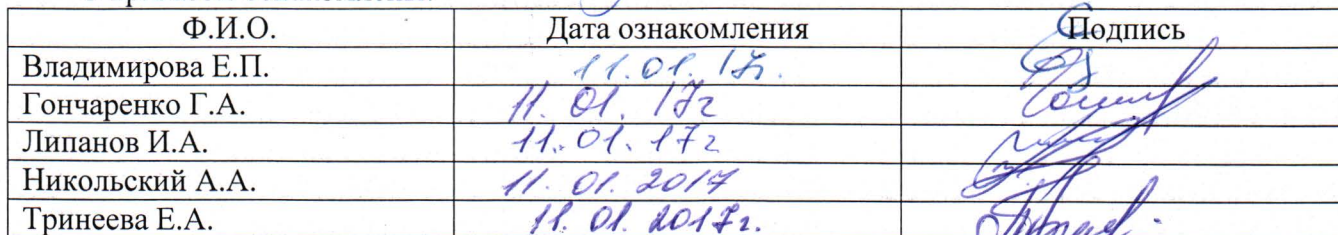 Ф.И.О. Дата ознакомления Подпись
Владимирова Е.П. 11.01.17г.
Гончаренко Г.А. 11.01.17г
Липанов И.А. 11.01.17г
Никольский А.А. 11.01.2017
Тринеева Е.А. 11.01.2017г.